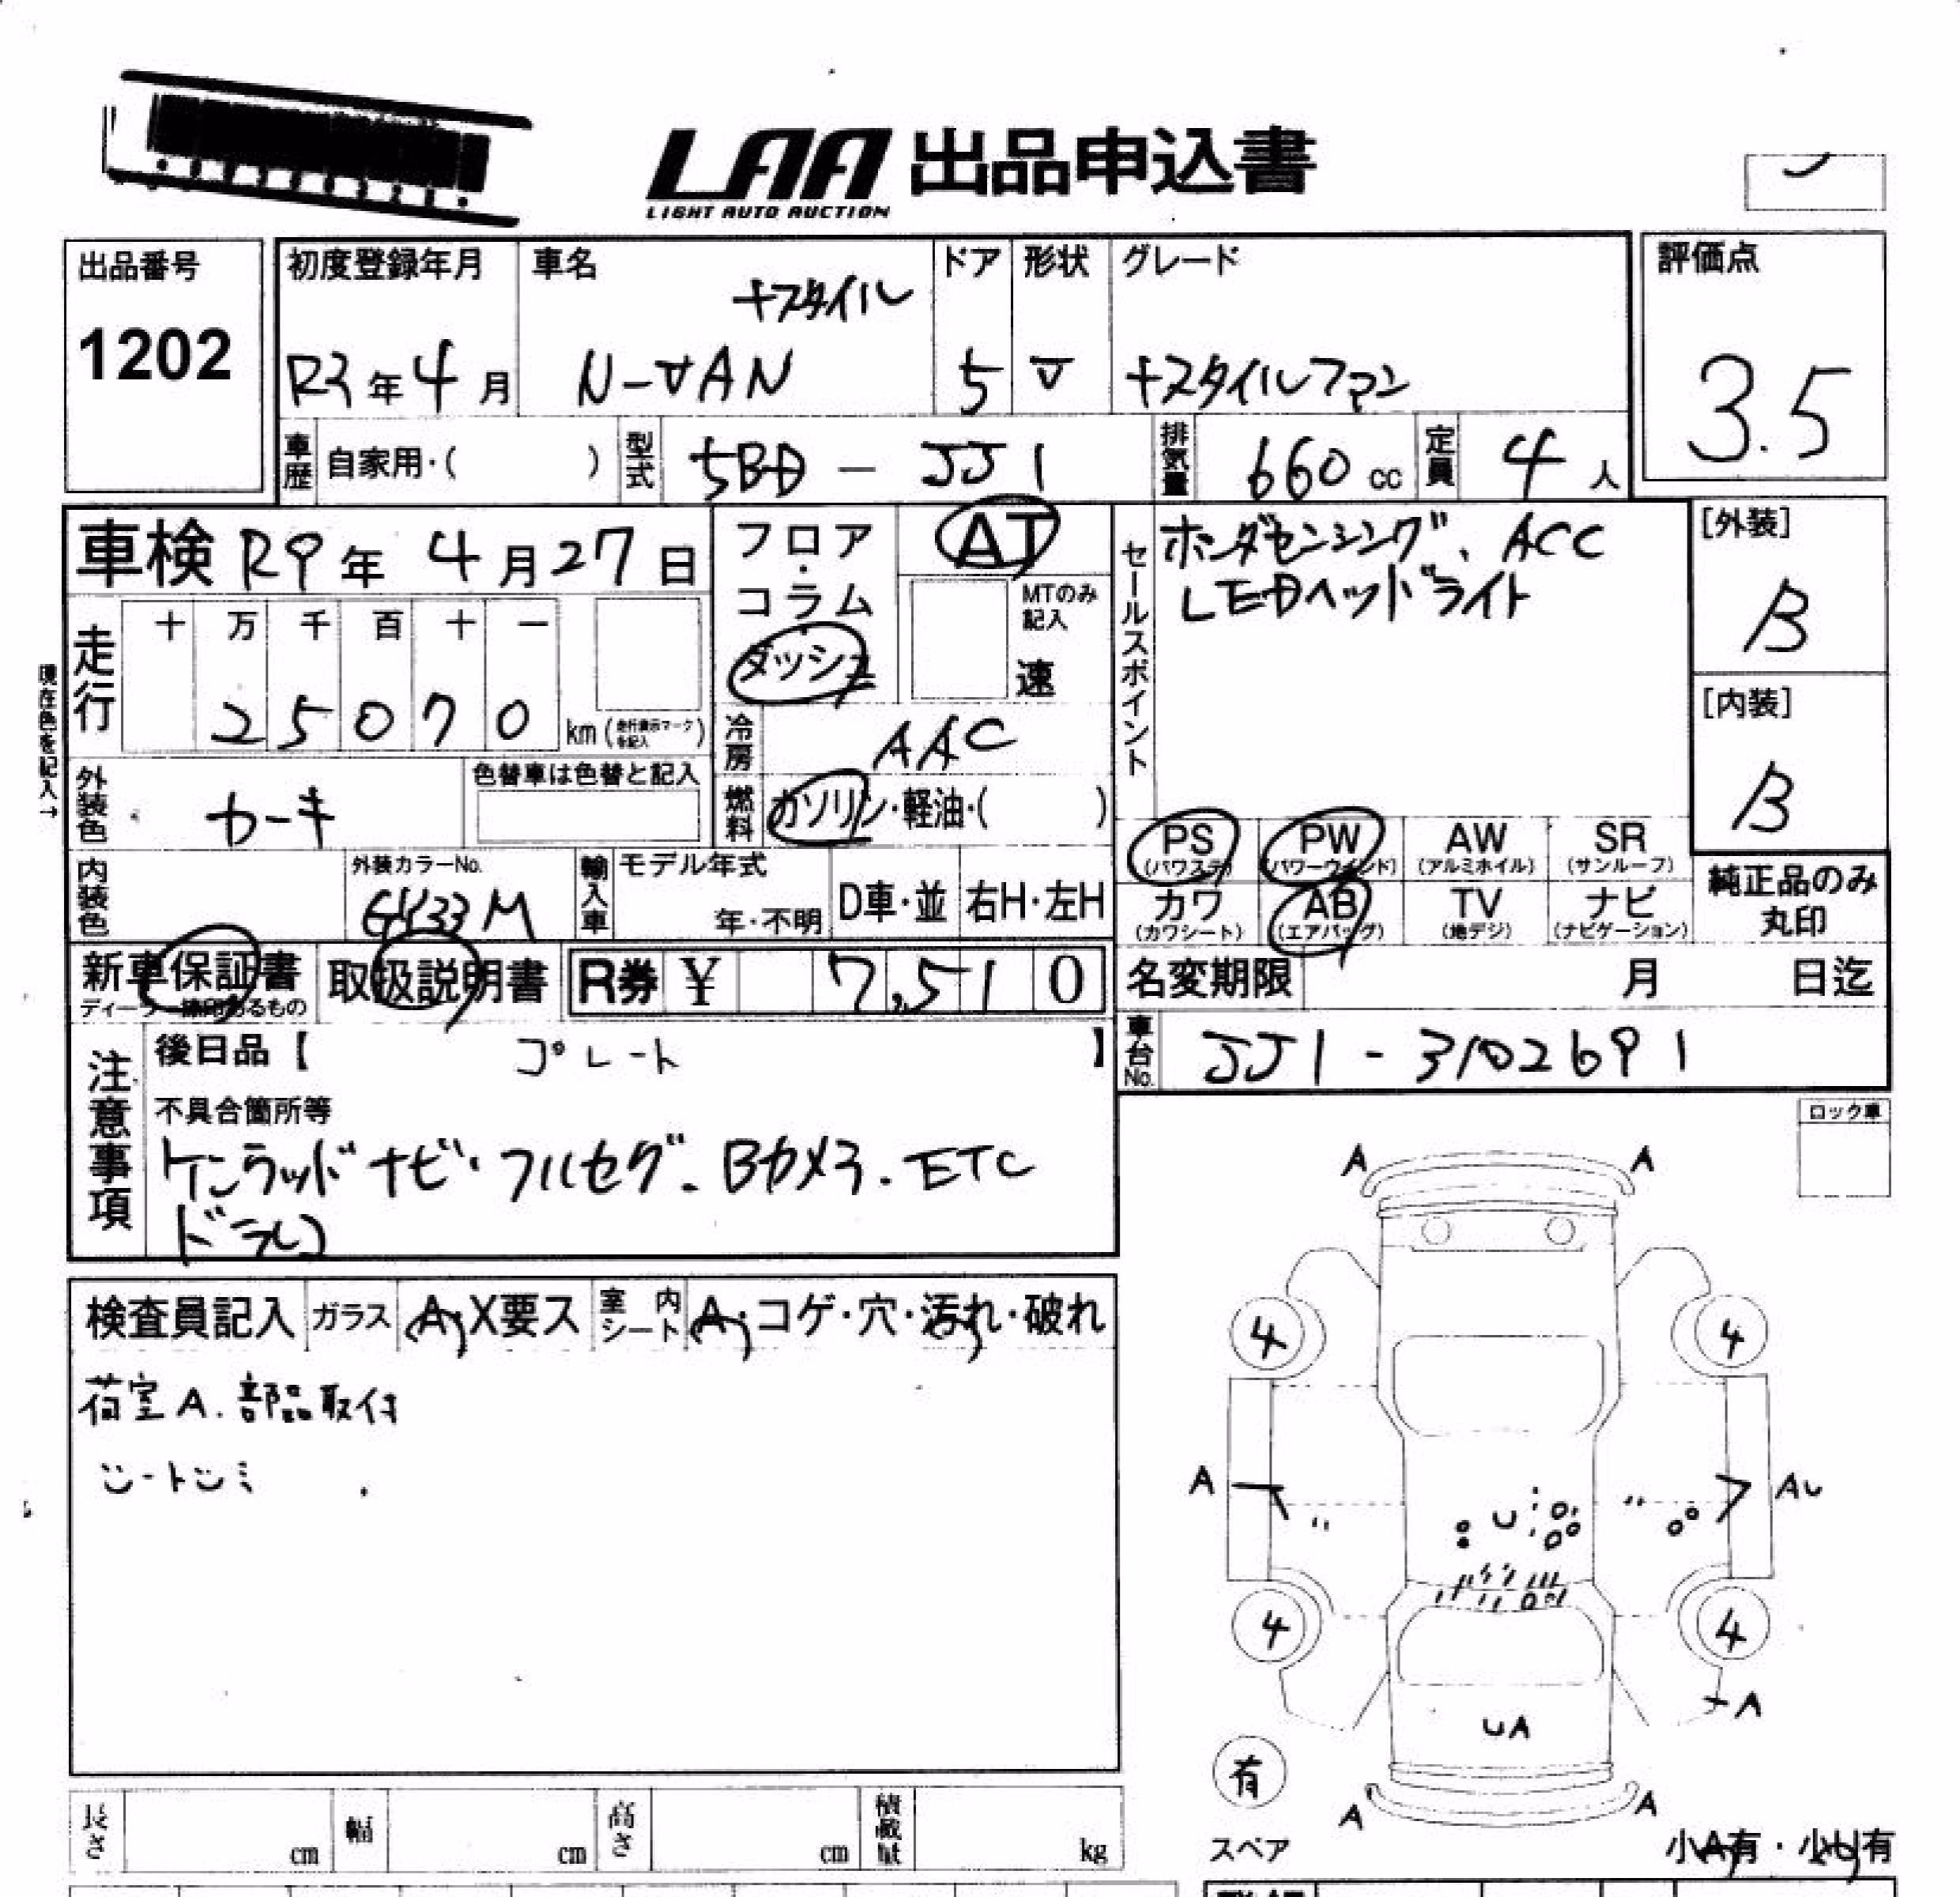 LAA 出品申込書
LIGHT AUTO AUCTION
出品番号
1202
初度登録年月
R3年4月
車名
+スタイル
N-VAN
ドア
5
形状
V
グレード
+スタイルファン
評価点
3.5
車歴 自家用・( )
型式 5BD - JJ1
排気量 660 cc
定員 4 人
車検 R9年 4月27日
走行
十 万 千 百 十 一
2 5 0 7 0 km (走行表示マークを記入)
現在色を記入→
外装色 カーキ
色替車は色替と記入
内装色
外装カラーNo.
GY33M
輸入車
モデル年式
年・不明
D車・並
右H・左H
フロア・コラム・ダッシュ
AT
MTのみ記入
速
冷房 AAC
燃料 ガソリン・軽油・( )
セールスポイント
ホンダセンシング、ACC
LEDヘッドライト
[外装]
B
[内装]
B
PS (パワステ) PW (パワーウインド) AW (アルミホイル) SR (サンルーフ)
カワ (カワシート) AB (エアバッグ) TV (地デジ) ナビ (ナビゲーション)
純正品のみ
丸印
新車保証書
取扱説明書
R券 ¥ 7,510
名変期限 月 日迄
車台No. JJ1 - 3102691
注意事項
後日品【 プレート 】
不具合箇所等
ケンウッドナビ・フルセグ.Bカメラ.ETC
ドラレコ
検査員記入 ガラス A・X要ス 室内シート A・コゲ・穴・汚れ・破れ
荷室A.部品取付
シートシミ
ロック車
A A
4 4
A AU
U
4 4
A
UA
A A
有
スペア
小A有・小U有
長さ cm 幅 cm 高さ cm 積載量 kg